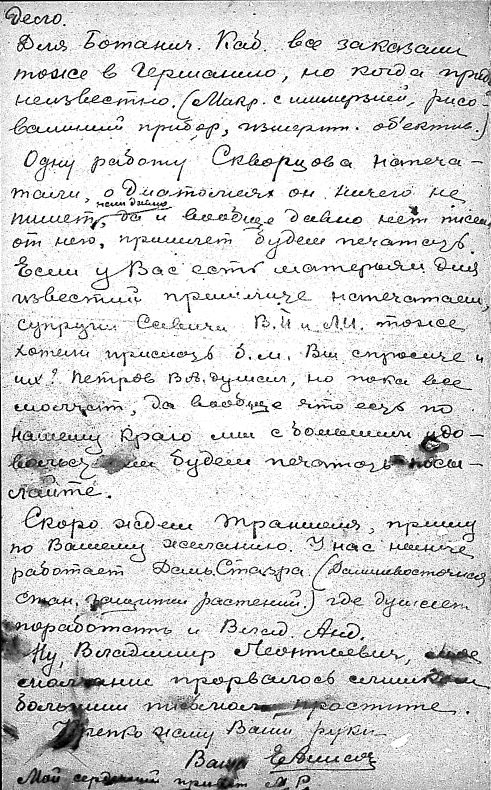 десго.
Для Ботанич. Каб. все заказали
тоже в Германию, но когда прид
неизвестно. (Микр. с иммерзией, рисо-
вальный прибор, измерит. объектив.)
Одну работу Скворцова напеча-
тали, о Диатомеях он ничего не
пишет, да и вообще давно нет писем
от него, пришлет будем печатать.
Если у Вас есть матерьял для
известий пришлите напечатаем,
супруги Савичи В.П и Л.И. тоже
хотели прислать б.м. Вы спросите и
их? Петров В.А. думал, но пока все
молчит, да вообще что есть по
нашему краю мы с большим удо-
вольств будем печатать посы-
лайте.
Скоро ждем Траншеля, пришлу
по Вашему желанию. У нас нынче
работает Даль.Стазра (Дальневосточная
стан. защиты растений.) где думает
поработать и Влад. Анд.
Ну, Владимир Леонтиевич, мое
молчание прорвалось слишком
большим письмом, простите.
Крепко жму Ваши руки
Ваш
Мой сердечный привет